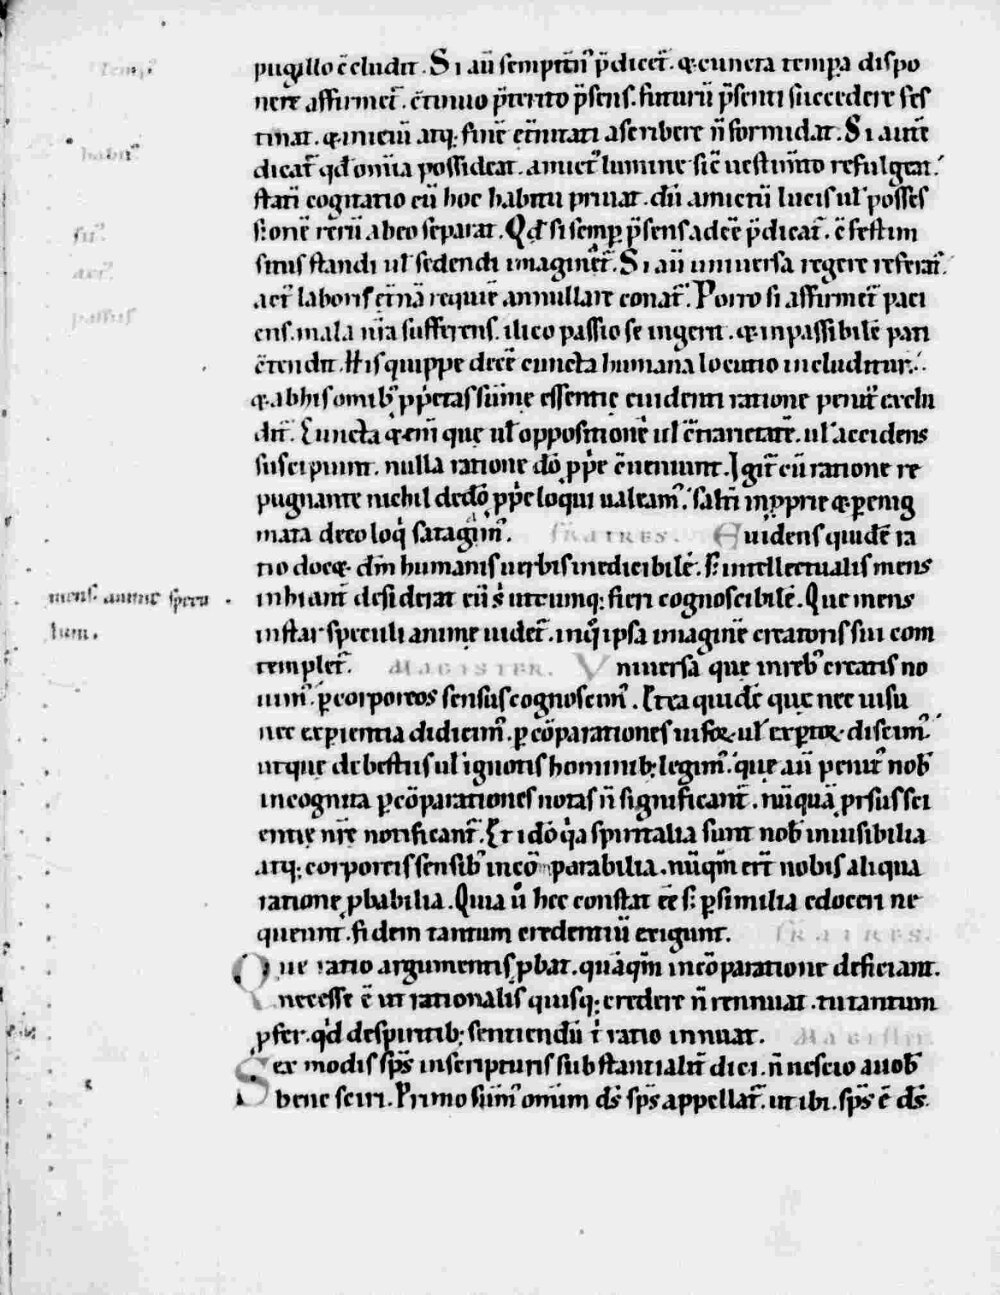 Temp᷒
pugillo c̄cludit. Si aū sempit͛nū p̄dicet͛. q; cuncta tempꝑa dispo
nere affirmet͛. c̄tinuo p̄terito p̄sens. futurū p̄senti succedere fes
tinat. & iniciū atq; finē et͛nitati ascribere n̄ formidat. Si autē
habit᷒
dicat͛ qđ om̄ia possideat. amict᷒ lumine sic̄ uestim̄to refulgeat.
stati cogitatio eū hoc habitu priuat. dū amictū lucis ul͛ posses
sionē rerū ab eo separat. Qđ si semp̱ p̄sens adeē p̄dicat͛. c̄festim
sit᷒
situs standi ul͛ sedendi imaginet͛. Si aū uniuersa regere referat͛.
act᷒
act᷒ laboris et͛nā requiē annullare conat͛. Porro si affirmet͛ paci
passus
ens. mala nr̄a sufferens. ilico passio se ingerit. & inpassibilē pati
c̄tendit. His quippe decē cuncta humana locutio includitur.
& ab his omib᷒ pp̄etas sūme essentie euidenti ratione penit᷒ exclu
dit͛. Cuncta q; eni que ul͛ oppositionē ul͛ c̄trarietatē. ul͛ accidens
suscipiunt. nulla ratione dō pp̄e c̄ueniunt. Igit͛ cū ratione re
pugnante nichil de dō pp̄e loqui ualeam᷒. salti inpprie & p̱ enig
mata de eo loqͥ satagim᷒. FRATRES. Euidens quidē ra
tio docet. dm̄ humanis uerbis inedicibilē. s; intellectualis mens
mens. anime specu
inhiant͛ desiderat eū s; utcumq; fieri cognoscibilē. Que mens
lum.
instar speculi anime uidet͛. in qͥ ipsa imaginē creatoris sui com
templet͛. MAGISTER. Vniuersa que in reb᷒ creatis no
uim᷒. p̱ corporeos sensus cognoscim᷒. Et ea quidē que nec uisu
nec exp̱ientia didicim᷒. p̱ cōparationes uisoꝝ ul͛ exp̱toꝝ discim᷒
utque de bestiis ul͛ ignotis hominib; legim᷒. que aū penit᷒ nob͛
incognita p̱ cōparationes notas n̄ significant͛. nūquā prsus sci
entie nr̄e notificant͛. Et idō qͥa spiritalia sunt nob͛ inuisibilia
atq; corporeis sensib᷒ incōparabilia. nūqm̄ erit nobis aliqua
ratione pbabilia. Quia ū hec constat eē s; p̱ similia edoceri ne
queunt. fidem tantum credentiū exigunt. FRATRES.
Que ratio argumentis pbat. quāqm̄ incōparatione deficiant.
necesse ē ut rationalis quisq; credere n̄ rennuat. tu tantum
pfer. qͥd de spiritib; sentiendū t̄ ratio innuat. MAGISTER.
Sex modis sp̄s in scripturis substantialit͛ dici. n̄ nescio a uob͛
bene sciri. Primo sūm᷒ omium ds̄ sp̄s appellat͛. ut ibi. sp̄s ē ds̄.